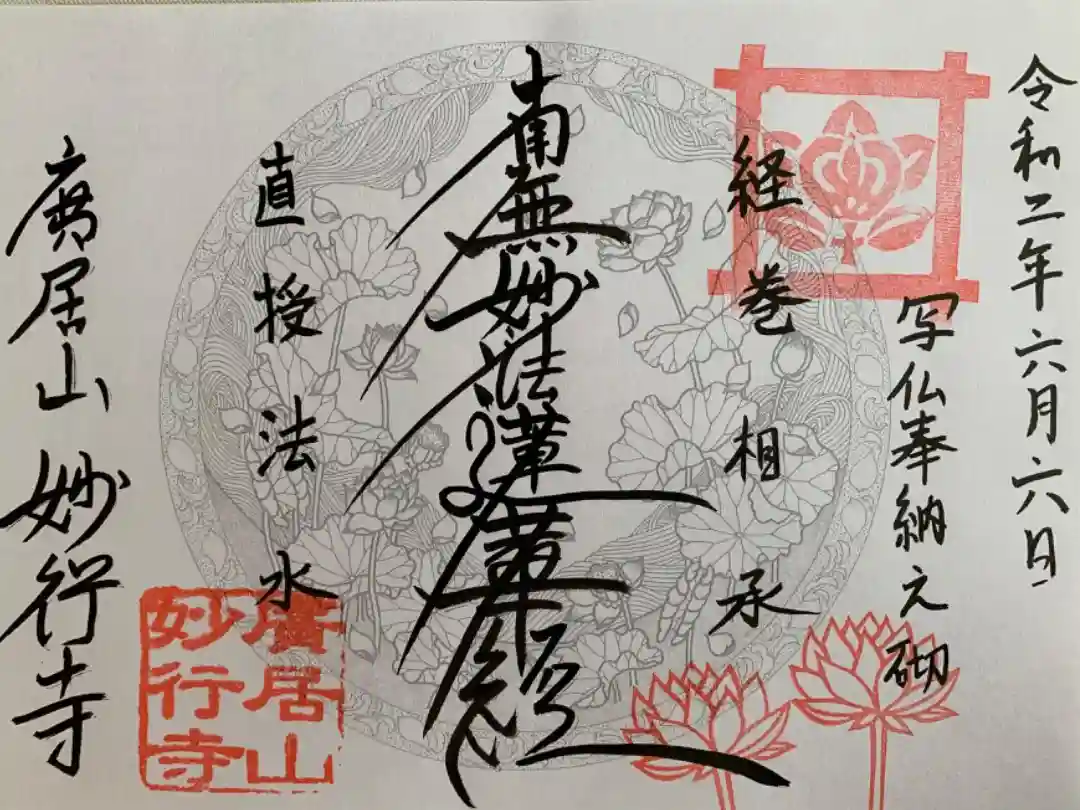 令和二年六月六日
写仏奉納之砌
経巻相承
南無妙法蓮華経
直授法水
廣居山妙行寺
廣居山
妙行寺